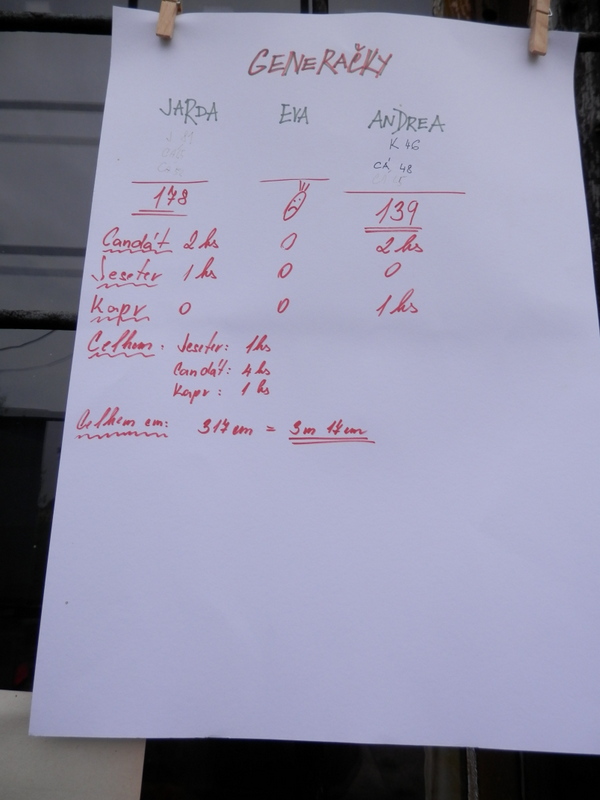 GENERAČKY
JARDA EVA ANDREA
K 46
CÁ 48
178 0 139
Candát 2 ks 0 2 ks
Jeseter 1 ks 0 0
Kapr 0 0 1 ks
Celkem: Jeseter: 1 ks
Candát: 4 ks
Kapr: 1 ks
Celkem cm: 317 cm = 3m 17cm